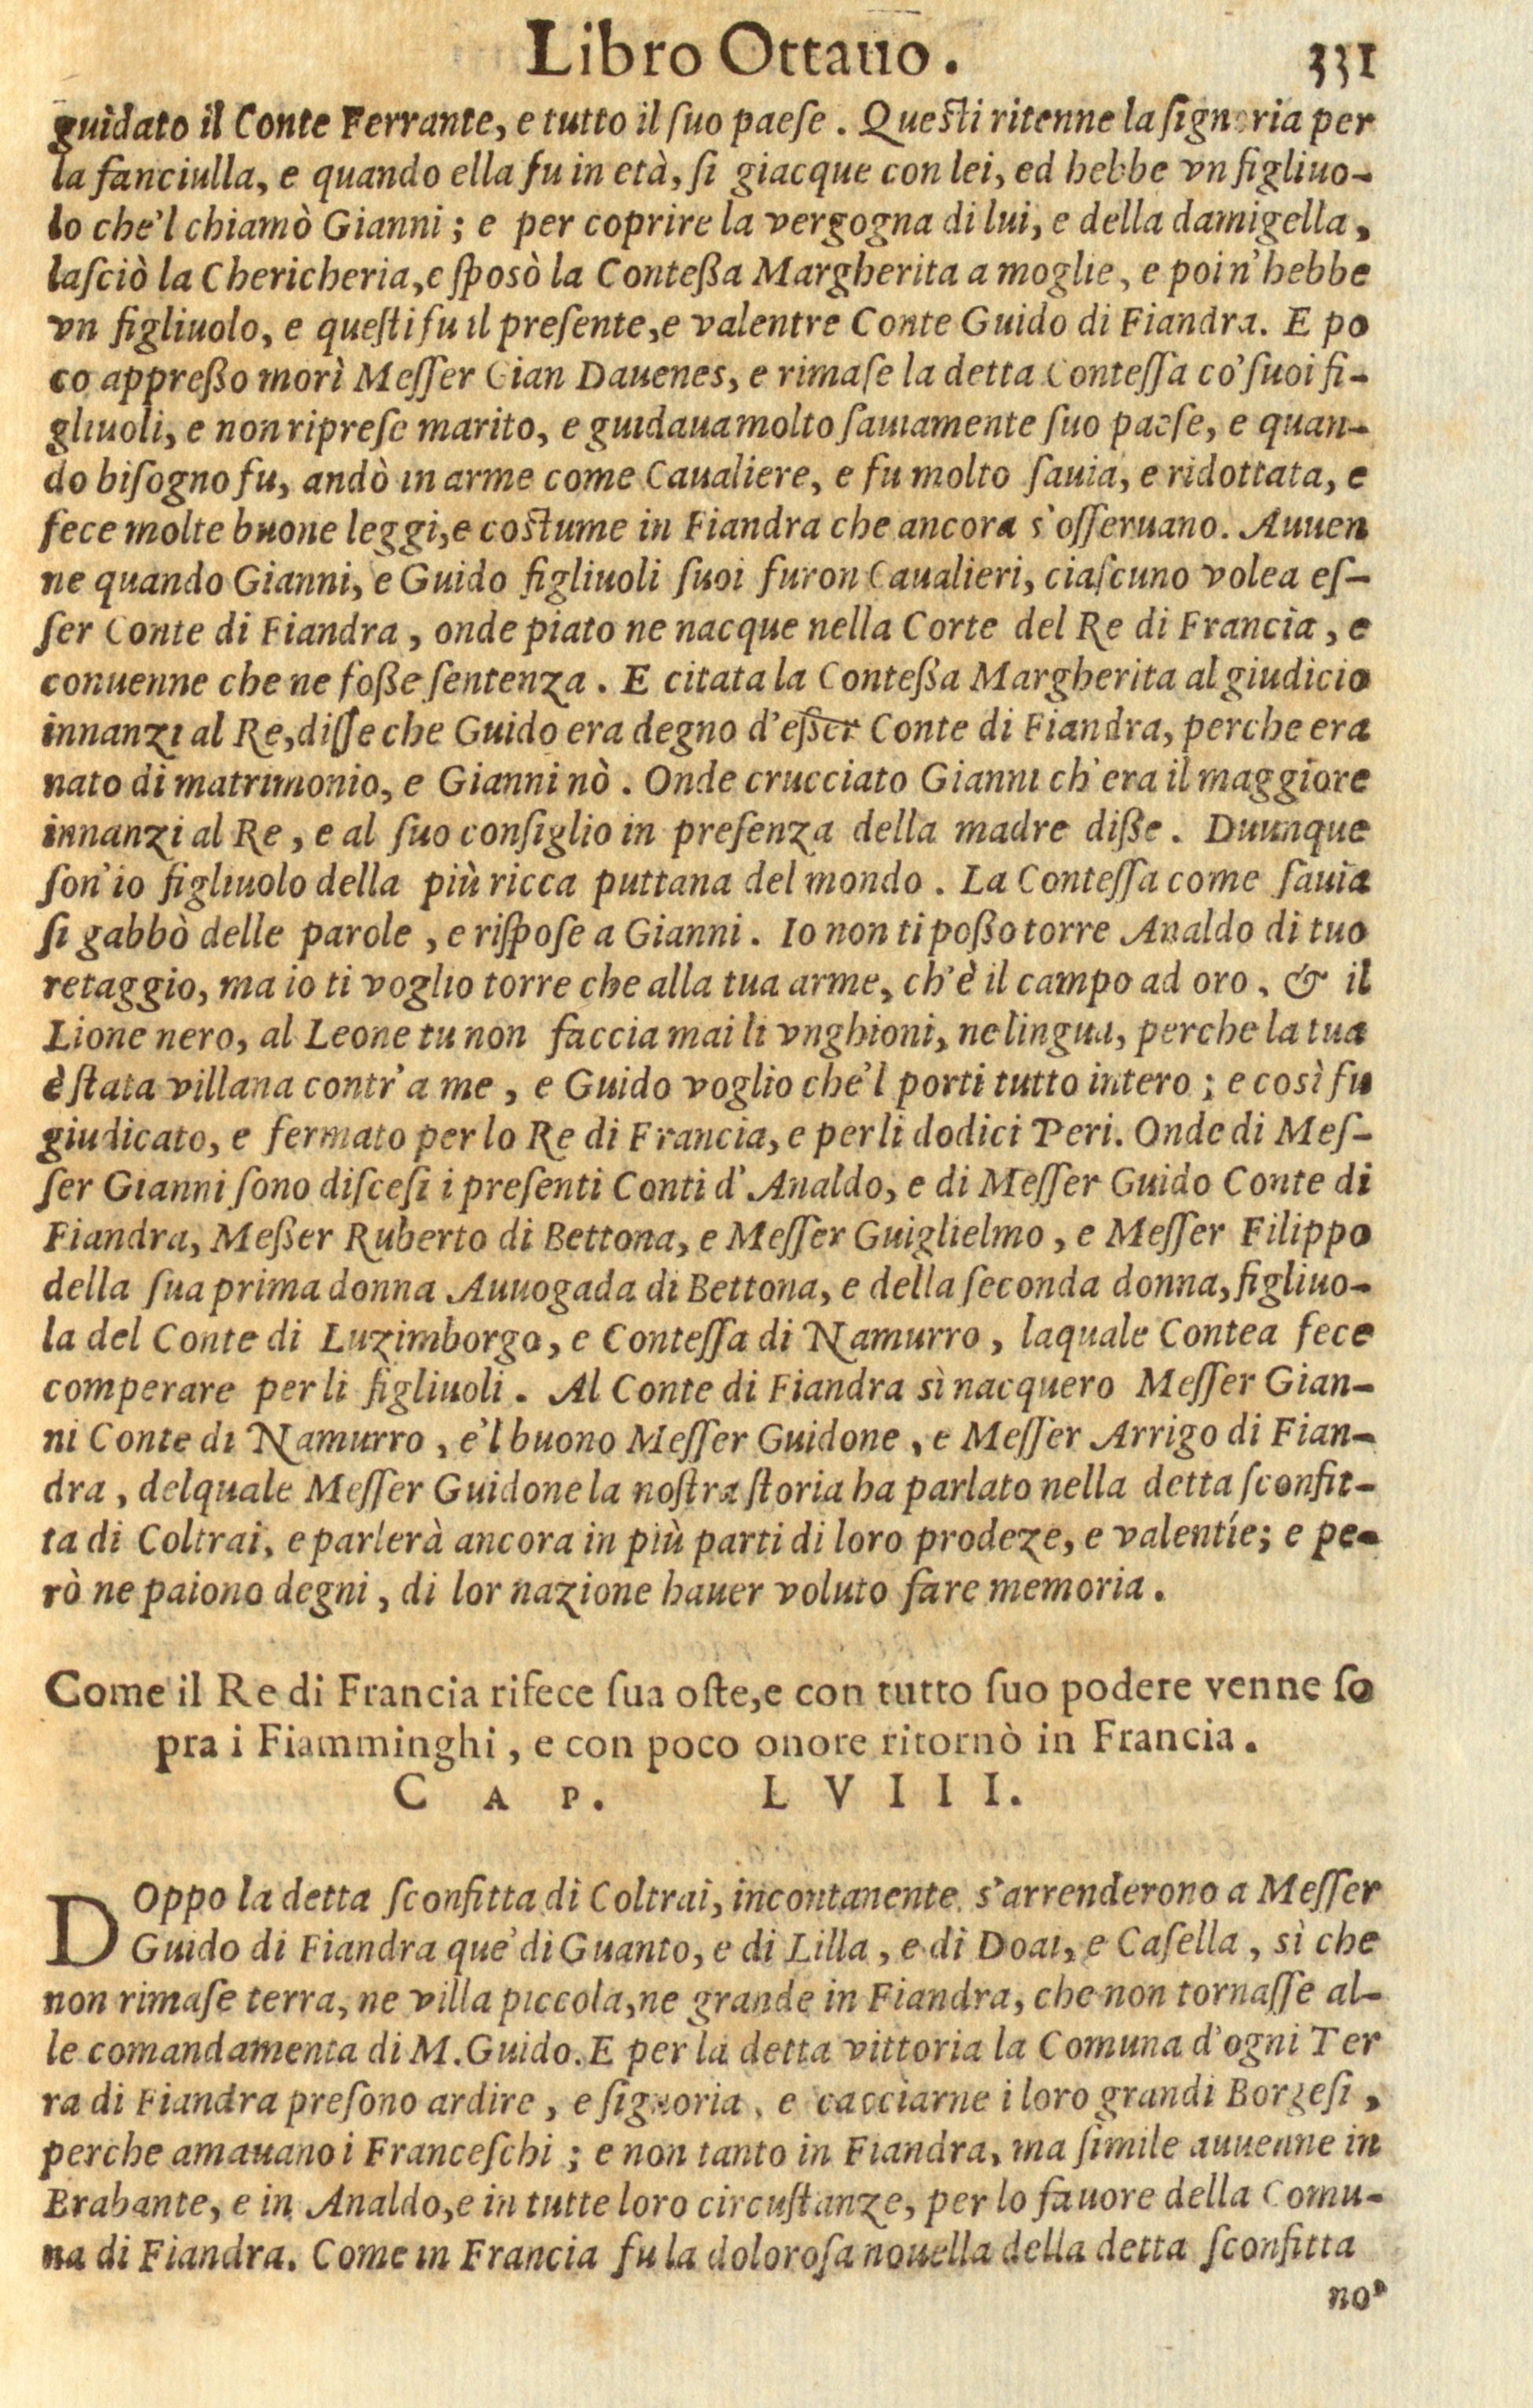 Libro Ottauo. 331
guidato il Conte Ferrante, e tutto il ſuo paeſe. Queſti ritenne la ſignoria per
la fanciulla, e quando ella fu in età, ſi giacque con lei, ed hebbe vn figliuo-
lo che'l chiamò Gianni; e per coprire la vergogna di lui, e della damigella,
laſciò la Chericheria, e ſposò la Conteßa Margherita a moglie, e poi n'hebbe
vn figliuolo, e queſti fu il preſente, e valentre Conte Guido di Fiandra. E po
co appreßo morì Meſſer Gian Dauenes, e rimaſe la detta Conteſſa co' ſuoi fi-
gliuoli, e non ripreſe marito, e guidaua molto ſauiamente ſuo paeſe, e quan-
do biſogno fu, andò in arme come Caualiere, e fu molto ſauia, e ridottata, e
fece molte buone leggi, e coſtume in Fiandra che ancora s'oſſeruano. Auuen
ne quando Gianni, e Guido figliuoli ſuoi furon Caualieri, ciaſcuno volea eſ-
ſer Conte di Fiandra, onde piato ne nacque nella Corte del Re di Francia, e
conuenne che ne foße ſentenza. E citata la Conteßa Margherita al giudicio
innanzi al Re, diſſe che Guido era degno d'eßer Conte di Fiandra, perche era
nato di matrimonio, e Gianni nò. Onde crucciato Gianni ch'era il maggiore
innanzi al Re, e al ſuo conſiglio in preſenza della madre diße. Duunque
ſon'io figliuolo della più ricca puttana del mondo. La Conteſſa come ſauia
ſi gabbò delle parole, e riſpoſe a Gianni. Io non ti poßo torre Analdo di tuo
retaggio, ma io ti voglio torre che alla tua arme, ch'è il campo ad oro, & il
Lione nero, al Leone tu non faccia mai li vnghioni, ne lingua, perche la tua
è ſtata villana contr'a me, e Guido voglio che'l porti tutto intero; e così fu
giudicato, e fermato per lo Re di Francia, e per li dodici Peri. Onde di Meſ-
ſer Gianni ſono diſceſi i preſenti Conti d'Analdo, e di Meſſer Guido Conte di
Fiandra, Meßer Ruberto di Bettona, e Meſſer Guiglielmo, e Meſſer Filippo
della ſua prima donna Auuogada di Bettona, e della ſeconda donna, figliuo-
la del Conte di Luzimborgo, e Conteſſa di Namurro, laquale Contea fece
comperare per li figliuoli. Al Conte di Fiandra sì nacquero Meſſer Gian-
ni Conte di Namurro, e'l buono Meſſer Guidone, e Meſſer Arrigo di Fian-
dra, delquale Meſſer Guidone la noſtra ſtoria ha parlato nella detta ſconfit-
ta di Coltrai, e parlerà ancora in più parti di loro prodeze, e valentíe; e pe-
rò ne paiono degni, di lor nazione hauer voluto fare memoria.
Come il Re di Francia rifece ſua oſte, e con tutto ſuo podere venne ſo
pra i Fiamminghi, e con poco onore ritornò in Francia.
CAP. LVIII.
DOppo la detta ſconfitta di Coltrai, incontanente s'arrenderono a Meſſer
Guido di Fiandra que' di Guanto, e di Lilla, e di Doai, e Caſella, sì che
non rimaſe terra, ne villa piccola, ne grande in Fiandra, che non tornaſſe al-
le comandamenta di M. Guido. E per la detta vittoria la Comuna d'ogni Ter
ra di Fiandra preſono ardire, e ſignoria, e cacciarne i loro grandi Borgeſi,
perche amauano i Franceſchi; e non tanto in Fiandra, ma ſimile auuenne in
Brabante, e in Analdo, e in tutte loro circuſtanze, per lo fauore della Comu-
na di Fiandra. Come in Francia fu la doloroſa nouella della detta ſconfitta
no'